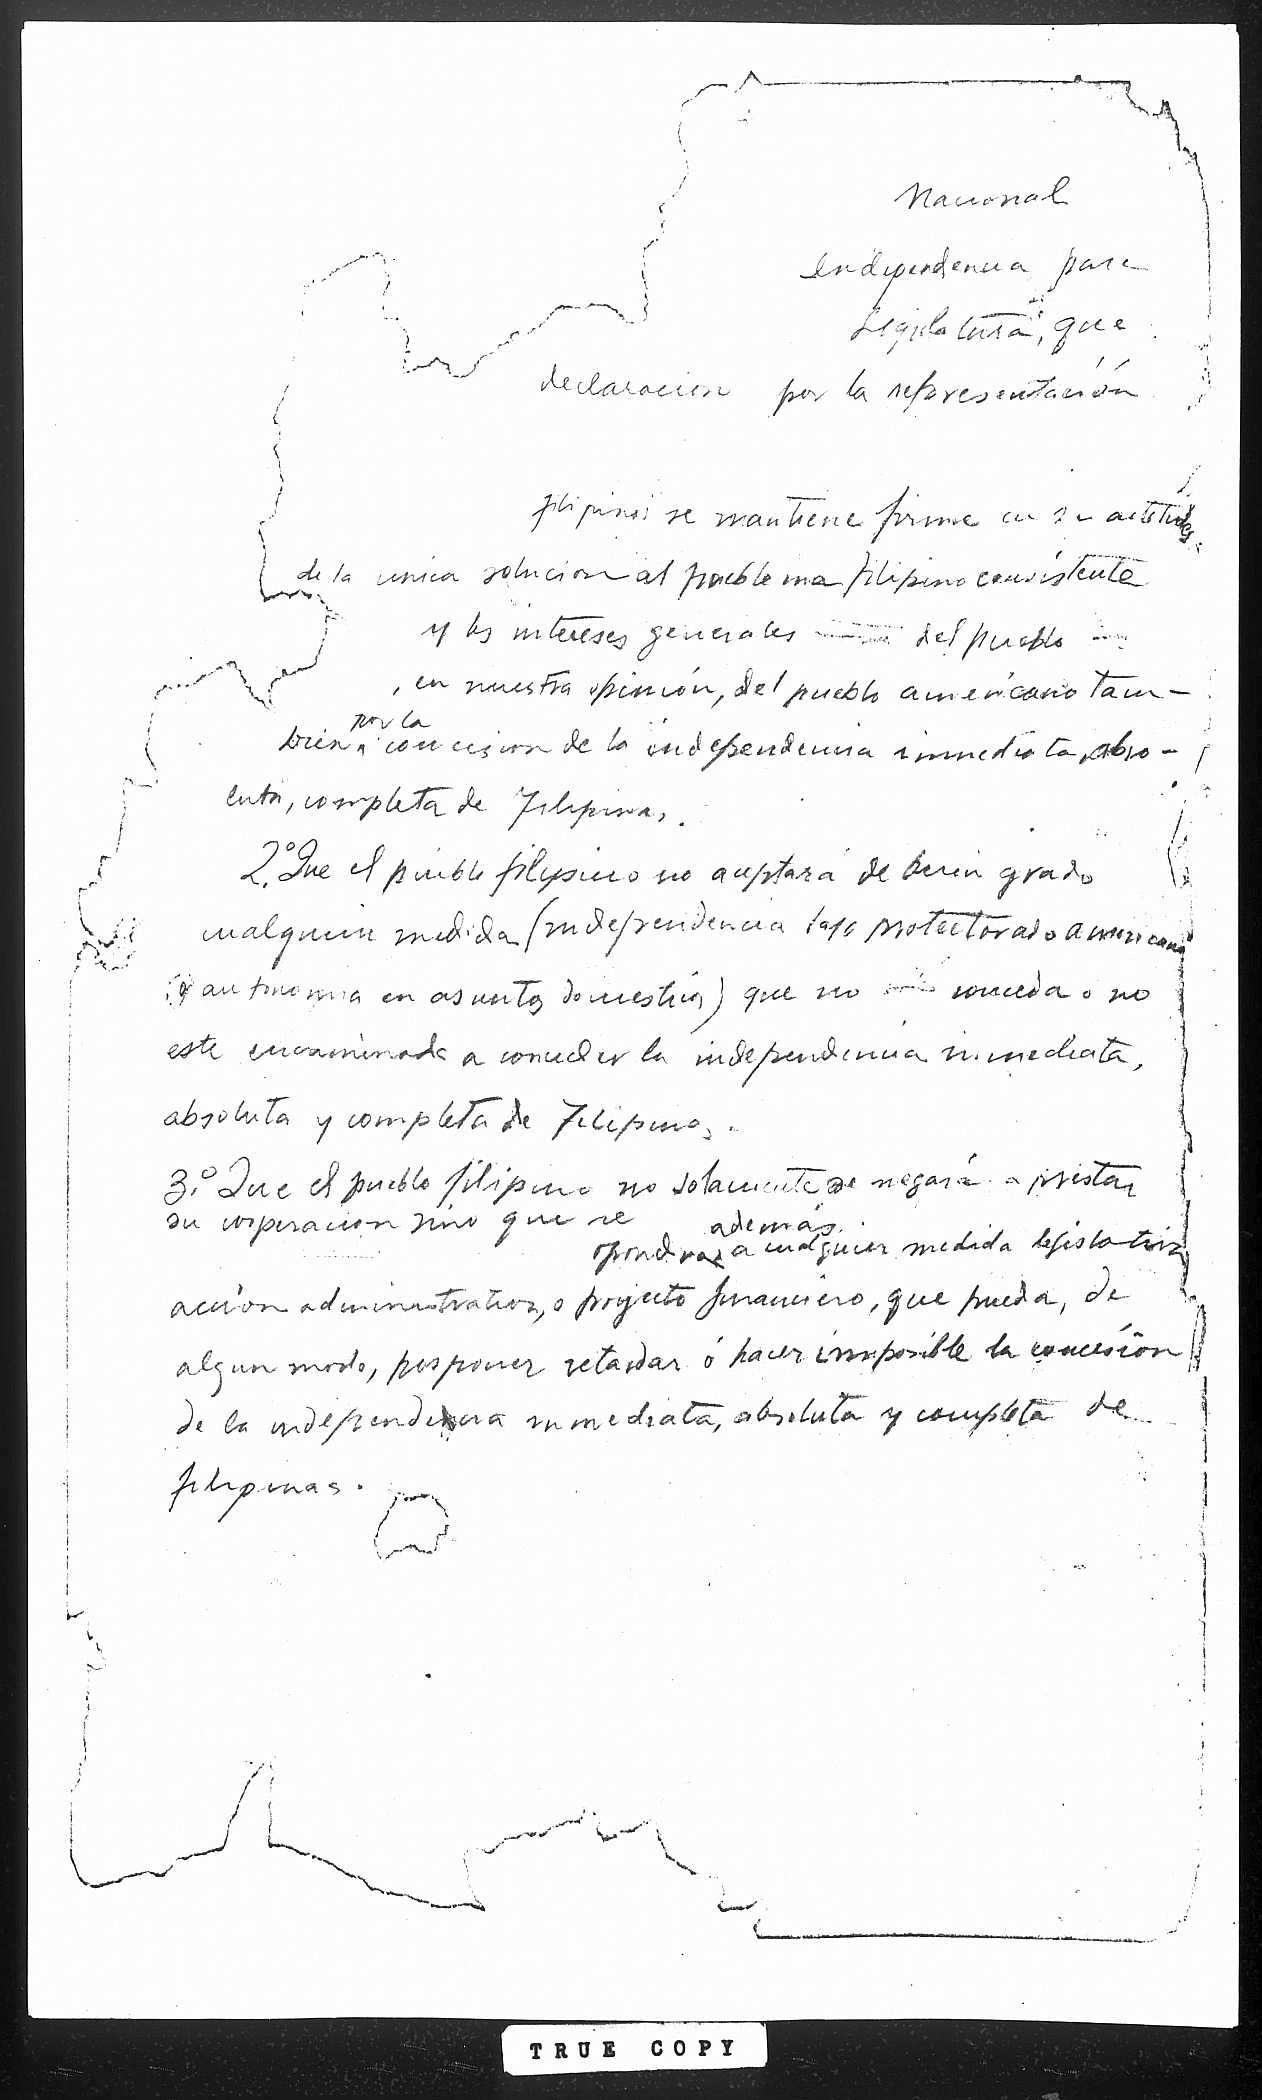 Nacional
Independencia para
Legislatura, que
declaracion por la representación
filipinos se mantiene firme en su actitud
de la unica solucion al problema filipino consistente
y los intereses generales del pueblo
, en nuestra opinión, del pueblo americano tam-
por la
bien concesion de la independencia inmediata, abso-
luta, completa de Filipinas.
2.º Que el pueblo filipino no aceptará de buen grado
cualquier medida (independencia bajo protectorado americano
o autonomia en asuntos domesticos) que no conceda o no
este encaminada a conceder la independencia inmediata,
absoluta y completa de Filipinas.
3.º Que el pueblo filipino no solamente se negará a prestar
su cooperacion sino que se además
opondrá a cualquier medida legislativa
accion administrativa, o proyecto financiero, que pueda, de
algun modo, posponer retardar ó hacer imposible la concesión
de la independencia inmediata, absoluta y completa de
filipinas.
TRUE COPY